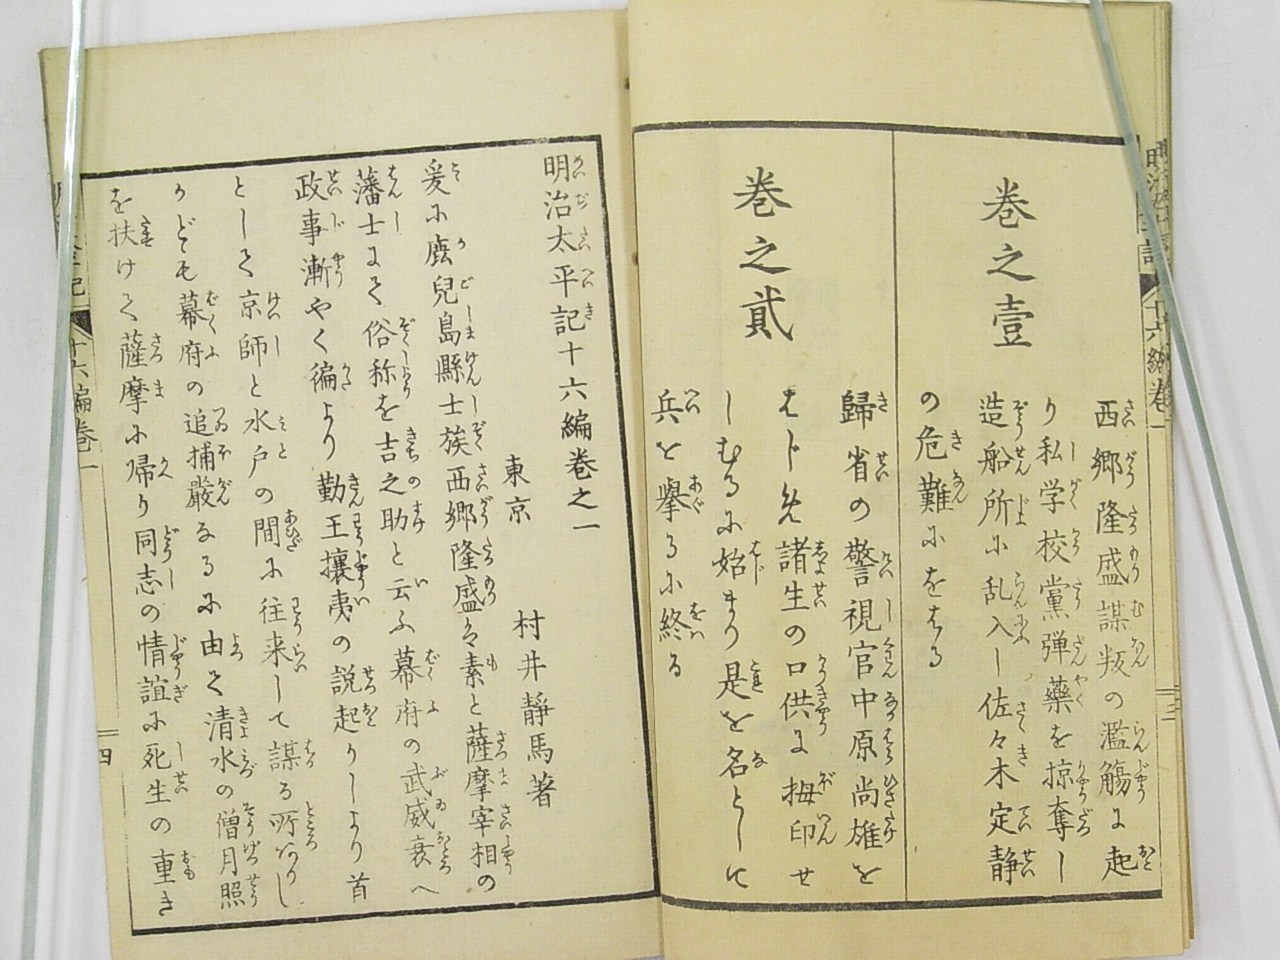 巻之壹
西郷隆盛謀叛の濫觴に起
り私学校黨弾藥を掠奪し
造船所に乱入し佐々木定静
の危難にをはる
巻之貳
歸省の警視官中原尚雄を
はじめ諸生の口供に拇印せ
しむるに始まり是を名として
兵を擧るに終る
明治太平記十六編巻之一
東京 村井靜馬著
爰に鹿兒島縣士族西郷隆盛は素と薩摩宰相の
藩士にて俗称を吉之助と云ふ幕府の武威衰へ
政事漸やく偏より勤王攘夷の説起りしより首
として京師と水戸の間に往来して謀る所ありし
かども幕府の追捕嚴なるに由て清水の僧月照
を扶けて薩摩に帰り同志の情誼に死生の重き
十六編巻一
四